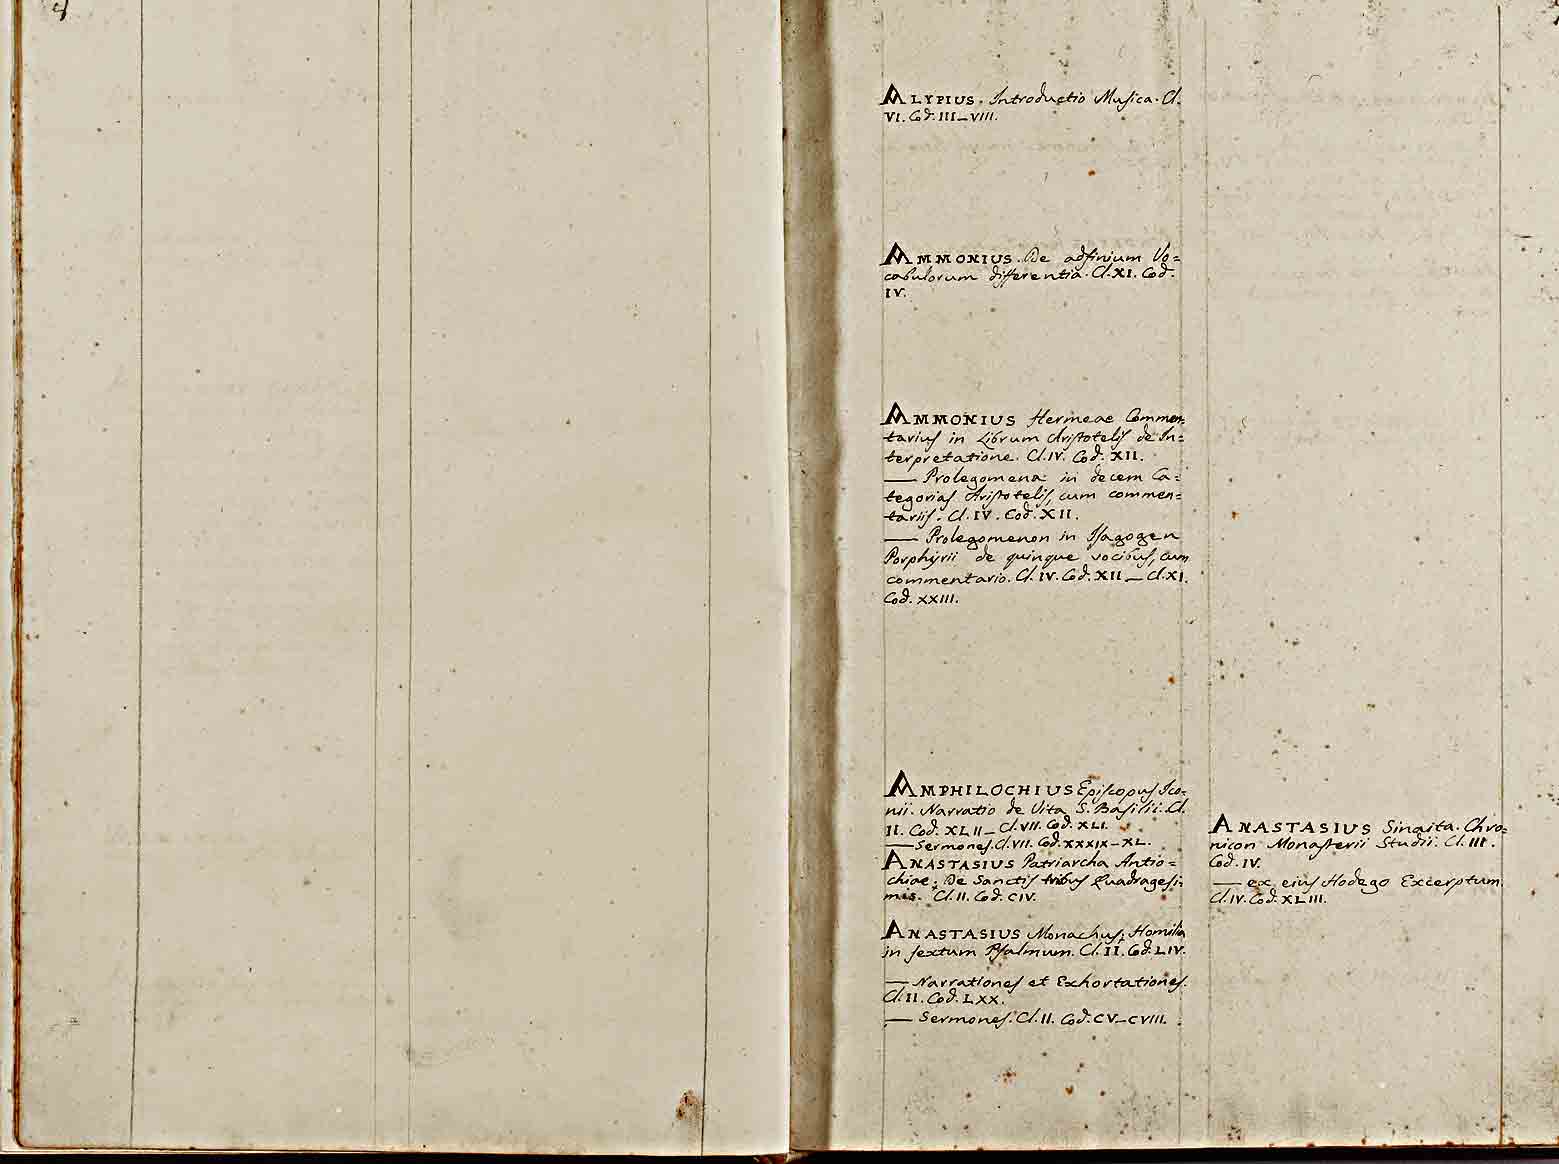 ALYPIUS. Introductio Musica. Cl.
VI. Cod. III_VIII.
AMMONIUS. De adfinium Vo=
cabulorum differentia. Cl. XI. Cod.
IV.
AMMONIUS Hermeae Commen=
tarius in Librum Aristotelis de In=
terpretatione. Cl. IV. Cod. XII.
— Prolegomena in decem Ca=
tegorias Aristotelis, cum commen=
tariis. Cl. IV. Cod. XII.
— Prolegomenon in Isagogen
Porphyrii de quinque vocibus, cum
commentario. Cl. IV. Cod. XII_Cl. XI.
Cod. XXIII.
AMPHILOCHIUS Episcopus Ico=
nii. Narratio de Vita S. Basilii. Cl.
II. Cod. XLII_Cl. VII. Cod. XLI.
— Sermones. Cl. VII. Cod. XXXIX-XL.
ANASTASIUS Patriarcha Antio=
chiae: De Sanctis tribus Quadragesi=
mis. Cl. II. Cod. CIV.
ANASTASIUS Monachus: Homilia
in sextum Psalmum. Cl. II. Cod. LIV.
— Narrationes et Exhortationes.
Cl. II. Cod. LXX.
— Sermones. Cl. II. Cod. CV_CVIII.
ANASTASIUS Sinaita. Chro=
nicon Monasterii Studii. Cl. III.
Cod. IV.
— ex eius Hodego Excerptum.
Cl. IV. Cod. XLIII.